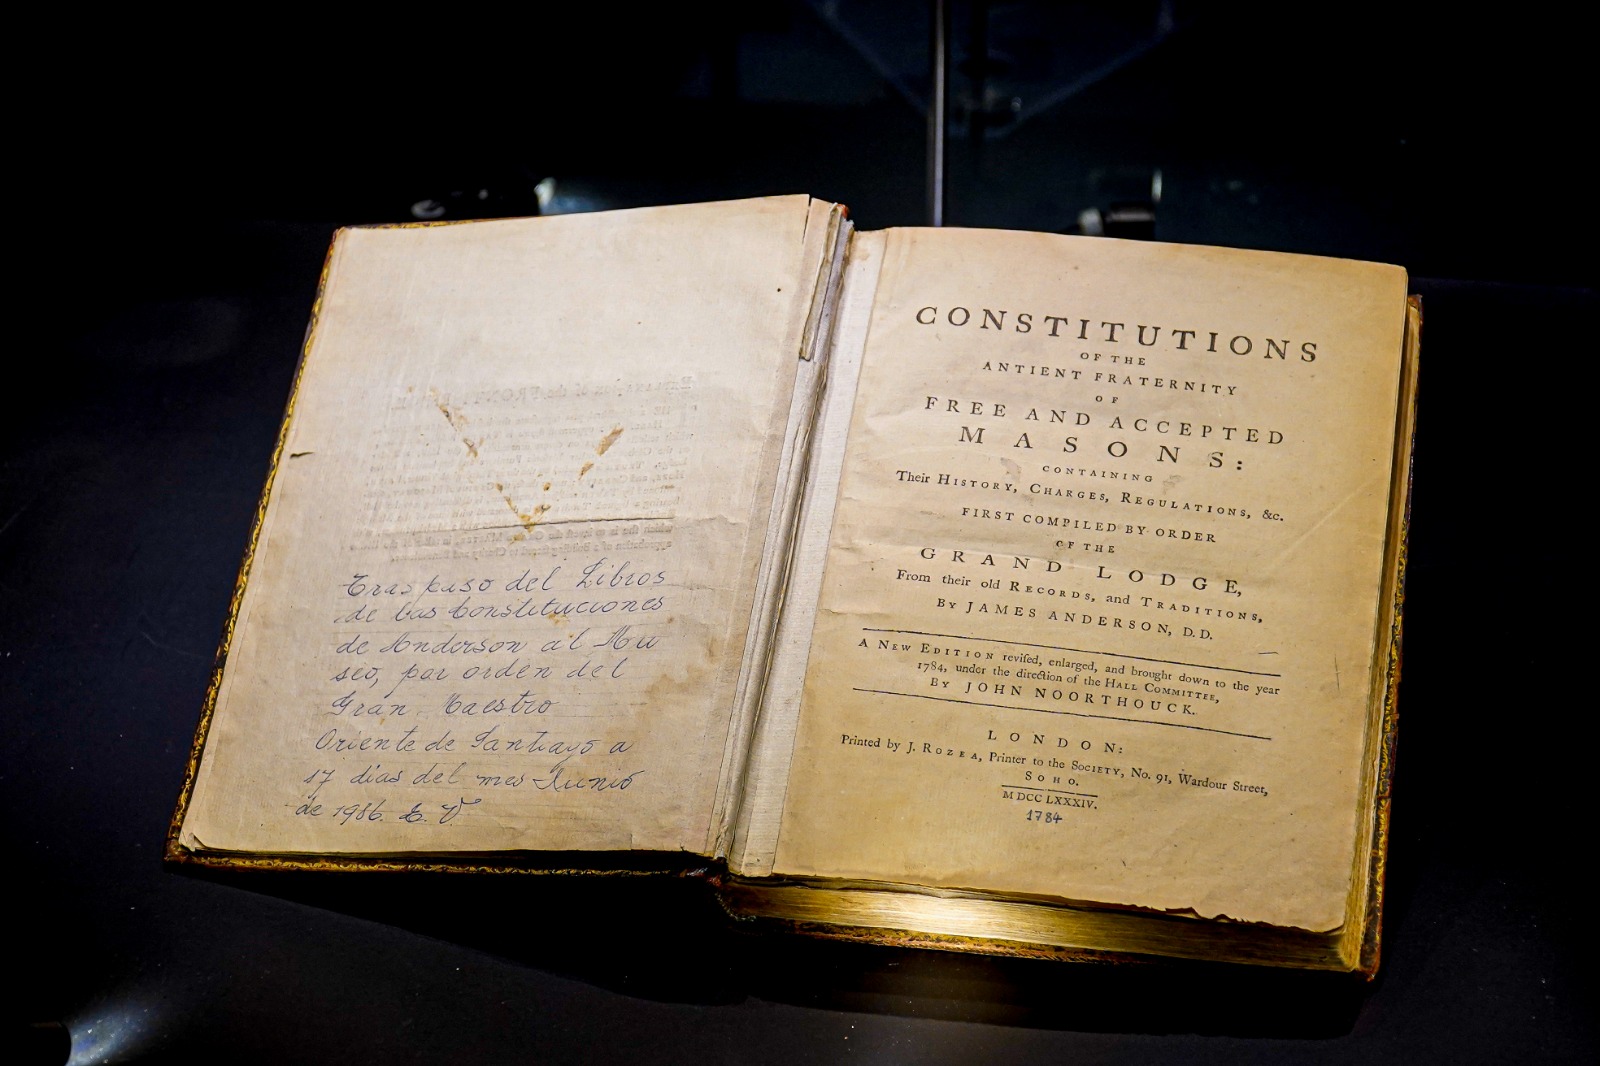 Traspaso del Libros
de las Constituciones
de Anderson al Mu
seo, por orden del
Gran Maestro
Oriente de Santiago a
17 dias del mes Junio
de 1986. E. V
CONSTITUTIONS
OF THE
ANTIENT FRATERNITY
OF
FREE AND ACCEPTED
MASONS:
CONTAINING
Their HISTORY, CHARGES, REGULATIONS, &c.
FIRST COMPILED BY ORDER
OF THE
GRAND LODGE,
From their old RECORDS, and TRADITIONS,
BY JAMES ANDERSON, D.D.
A NEW EDITION reviſed, enlarged, and brought down to the year
1784, under the direction of the HALL COMMITTEE,
BY JOHN NOORTHOUCK.
LONDON:
Printed by J. ROZEA, Printer to the SOCIETY, No. 91, Wardour Street,
SOHO.
M DCC LXXXIV.
1784